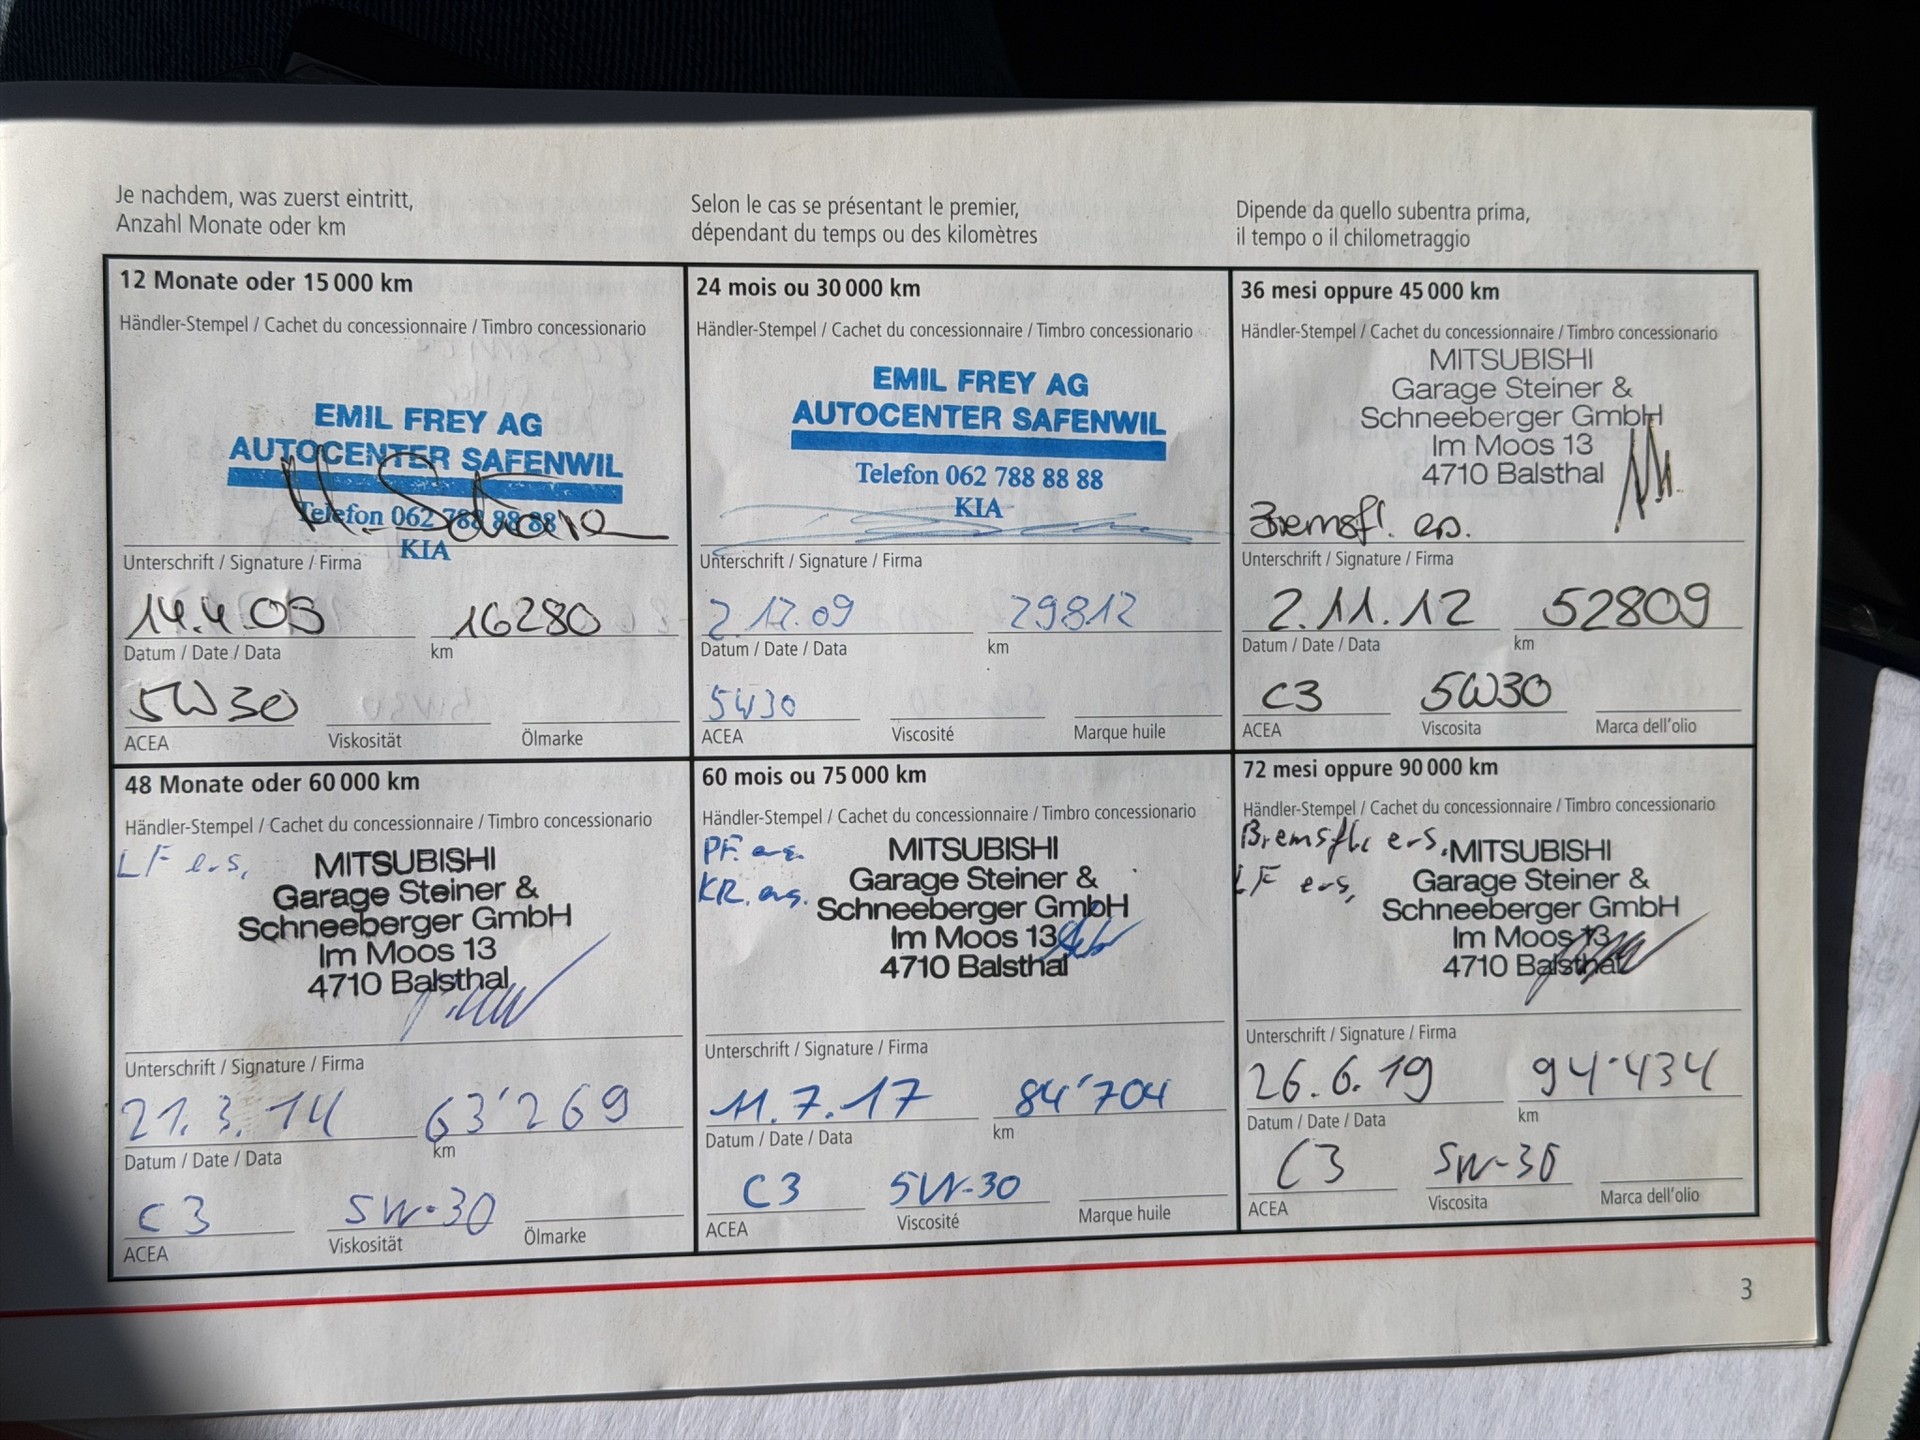 Je nachdem, was zuerst eintritt,
Anzahl Monate oder km
Selon le cas se présentant le premier,
dépendant du temps ou des kilomètres
Dipende da quello subentra prima,
il tempo o il chilometraggio
12 Monate oder 15 000 km
Händler-Stempel / Cachet du concessionnaire / Timbro concessionario
EMIL FREY AG
AUTOCENTER SAFENWIL
Telefon 062 788 88 88
KIA
Unterschrift / Signature / Firma
14.4.09 16280
Datum / Date / Data km
5W30
ACEA Viskosität Ölmarke
24 mois ou 30 000 km
Händler-Stempel / Cachet du concessionnaire / Timbro concessionario
EMIL FREY AG
AUTOCENTER SAFENWIL
Telefon 062 788 88 88
KIA
Unterschrift / Signature / Firma
2.12.09 29812
Datum / Date / Data km
5W30
ACEA Viscosité Marque huile
36 mesi oppure 45 000 km
Händler-Stempel / Cachet du concessionnaire / Timbro concessionario
MITSUBISHI
Garage Steiner &
Schneeberger GmbH
Im Moos 13
4710 Balsthal
Bremsfl. ers.
Unterschrift / Signature / Firma
2.11.12 52809
Datum / Date / Data km
C3 5W30
ACEA Viscosita Marca dell'olio
48 Monate oder 60 000 km
Händler-Stempel / Cachet du concessionnaire / Timbro concessionario
LF ers,
MITSUBISHI
Garage Steiner &
Schneeberger GmbH
Im Moos 13
4710 Balsthal
Unterschrift / Signature / Firma
21.3.14 63'269
Datum / Date / Data km
C3 5W-30
ACEA Viskosität Ölmarke
60 mois ou 75 000 km
Händler-Stempel / Cachet du concessionnaire / Timbro concessionario
PF. ers.
KR. ers.
MITSUBISHI
Garage Steiner &
Schneeberger GmbH
Im Moos 13
4710 Balsthal
Unterschrift / Signature / Firma
11.7.17 84'704
Datum / Date / Data km
C3 5W-30
ACEA Viscosité Marque huile
72 mesi oppure 90 000 km
Händler-Stempel / Cachet du concessionnaire / Timbro concessionario
Bremsfl. ers.
LF ers,
MITSUBISHI
Garage Steiner &
Schneeberger GmbH
Im Moos 13
4710 Balsthal
Unterschrift / Signature / Firma
26.6.19 94'434
Datum / Date / Data km
C3 5W-30
ACEA Viscosita Marca dell'olio
3